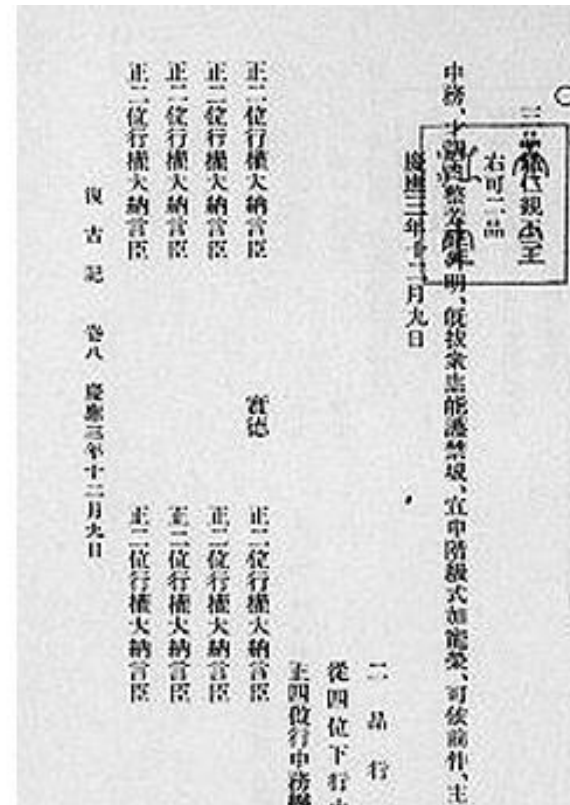 三 仁親王
右可二品
中務、才 整 明、既拔衆出能護禁城、宜申階級式加寵榮、可依前件、主
慶應三年十二月九日
二品行
從四位下行
正四位行中務權
正二位行權大納言臣 實德 正二位行權大納言臣
正二位行權大納言臣 正二位行權大納言臣
正二位行權大納言臣 正二位行權大納言臣
正二位行權大納言臣 正二位行權大納言臣
復古記 卷八 慶應三年十二月九日